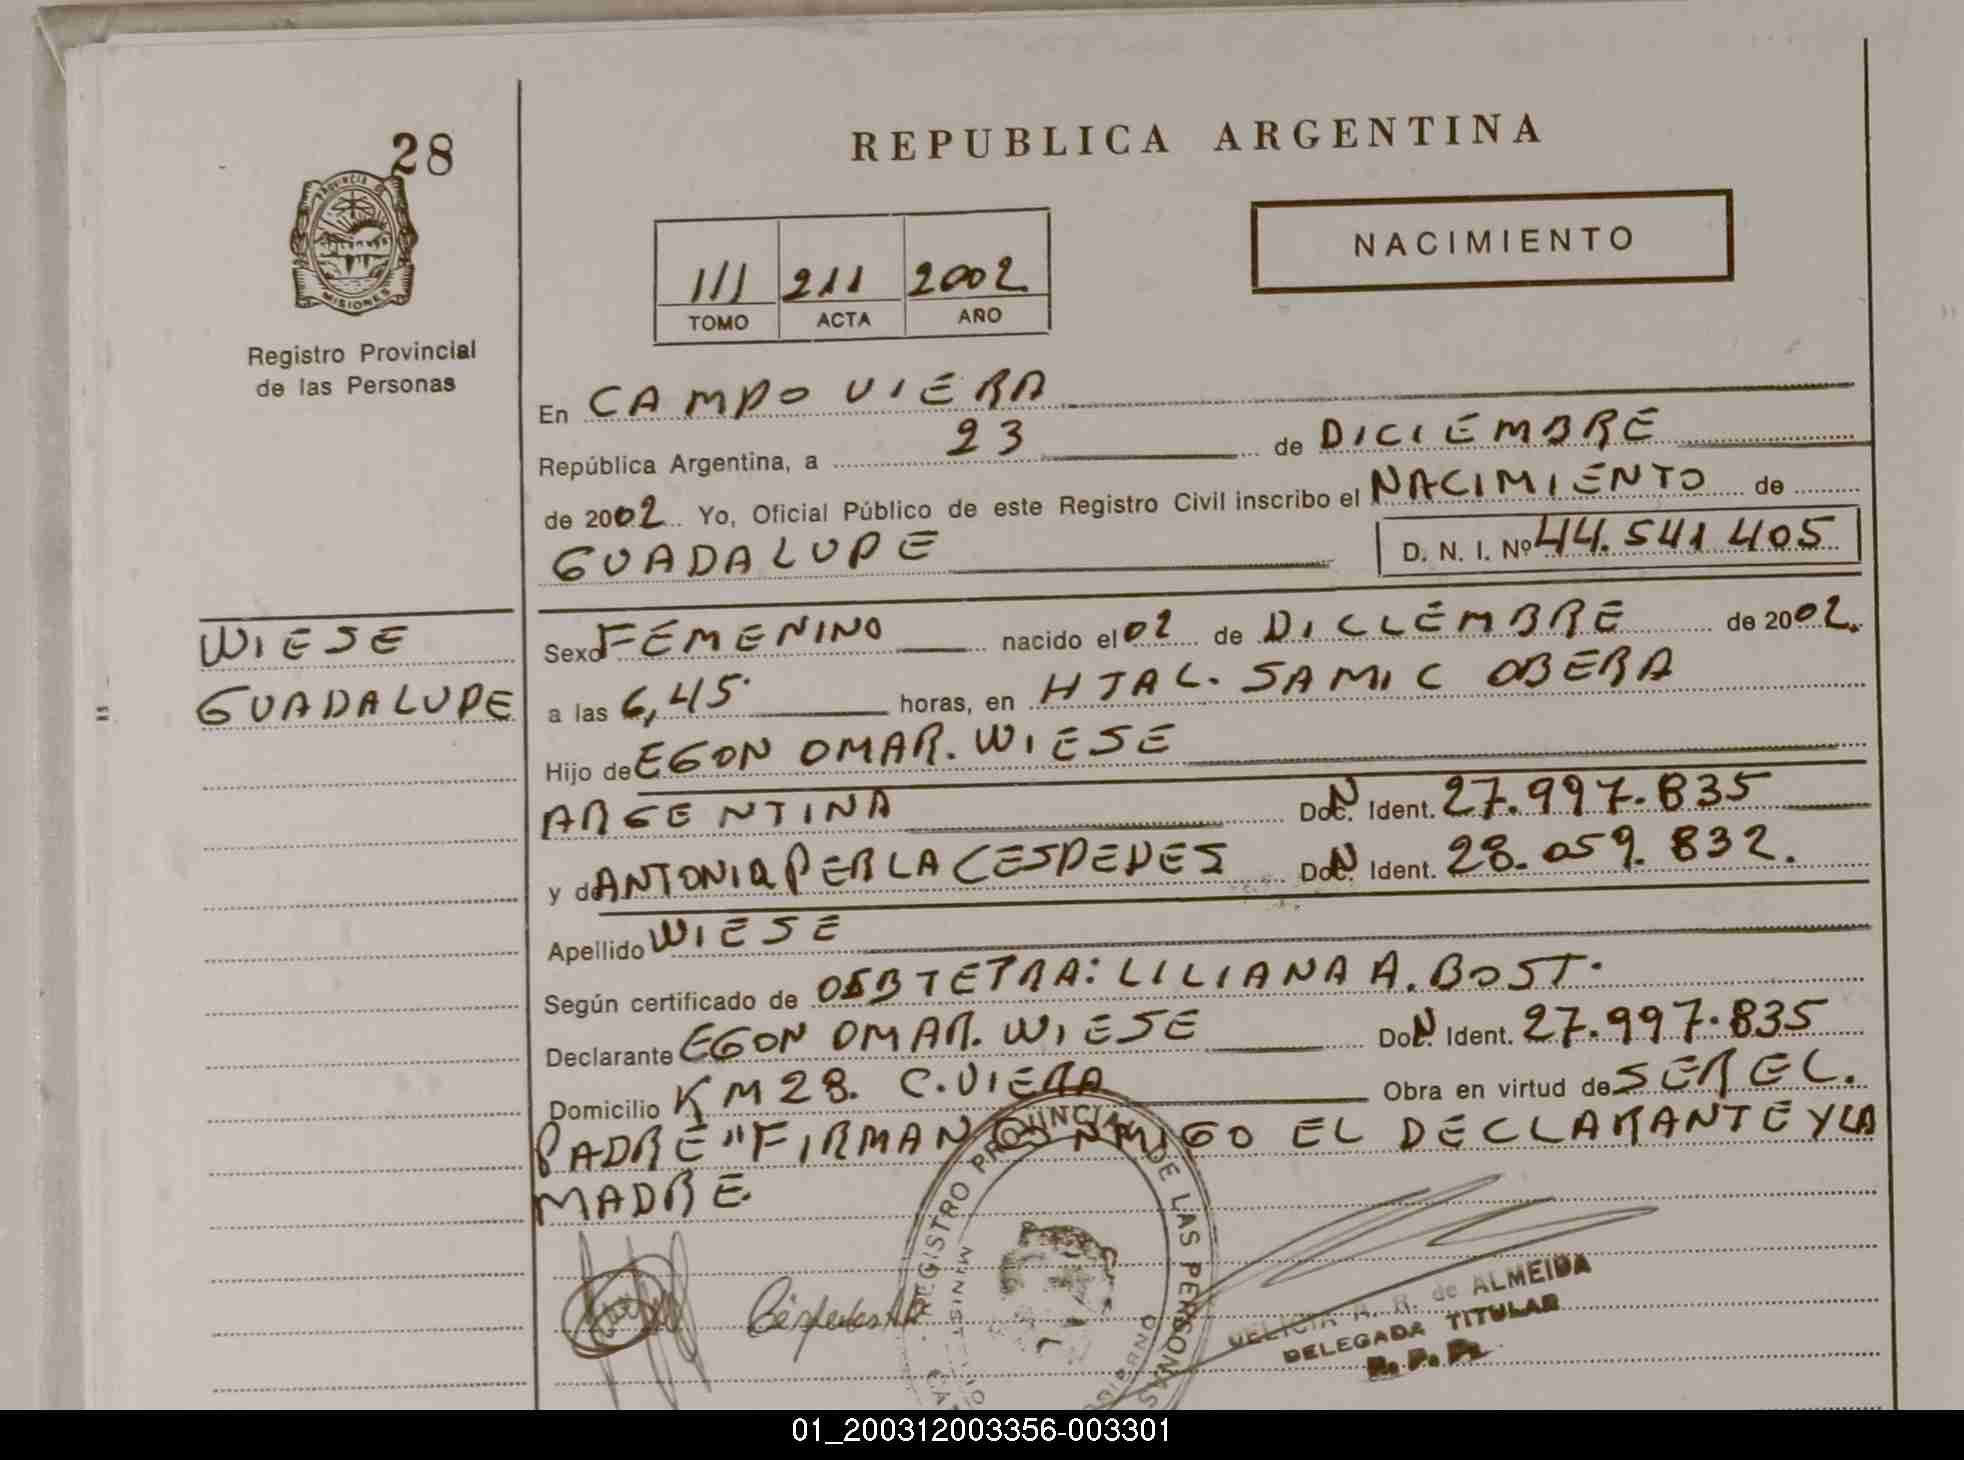 28
PROVINCIA DE
MISIONES
Registro Provincial
de las Personas
REPUBLICA ARGENTINA
NACIMIENTO
III 211 2002
TOMO ACTA AÑO
En CAMPO VIERA
República Argentina, a 23 de DICIEMBRE
de 2002 Yo, Oficial Público de este Registro Civil inscribo el NACIMIENTO de
GUADALUPE D. N. I. Nº 44.541.405
WIESE
GUADALUPE
Sexo FEMENINO nacido el 02 de DICLEMBRE de 2002.
a las 6,45 horas, en HTAL. SAMIC OBERA
Hijo de EGON OMAR. WIESE
ARGENTINA Doc. N Ident. 27.997.835
y de ANTONIA PERLA CESPEDES Doc. N Ident. 28.059.832.
Apellido WIESE
Según certificado de OBTETRA: LILIANA A. BOST.
Declarante EGON OMAR. WIESE Doc. N Ident. 27.997.835
Domicilio KM 28. C. VIERA Obra en virtud de SER EL.
PADRE "FIRMAN CONMIGO EL DECLARANTE Y LA
MADRE.
REGISTRO PROVINCIAL DE LAS PERSONAS
MINISTERIO
DELICIA R. de ALMEIDA
DELEGADA TITULAR
R. P. P.
01_200312003356-003301